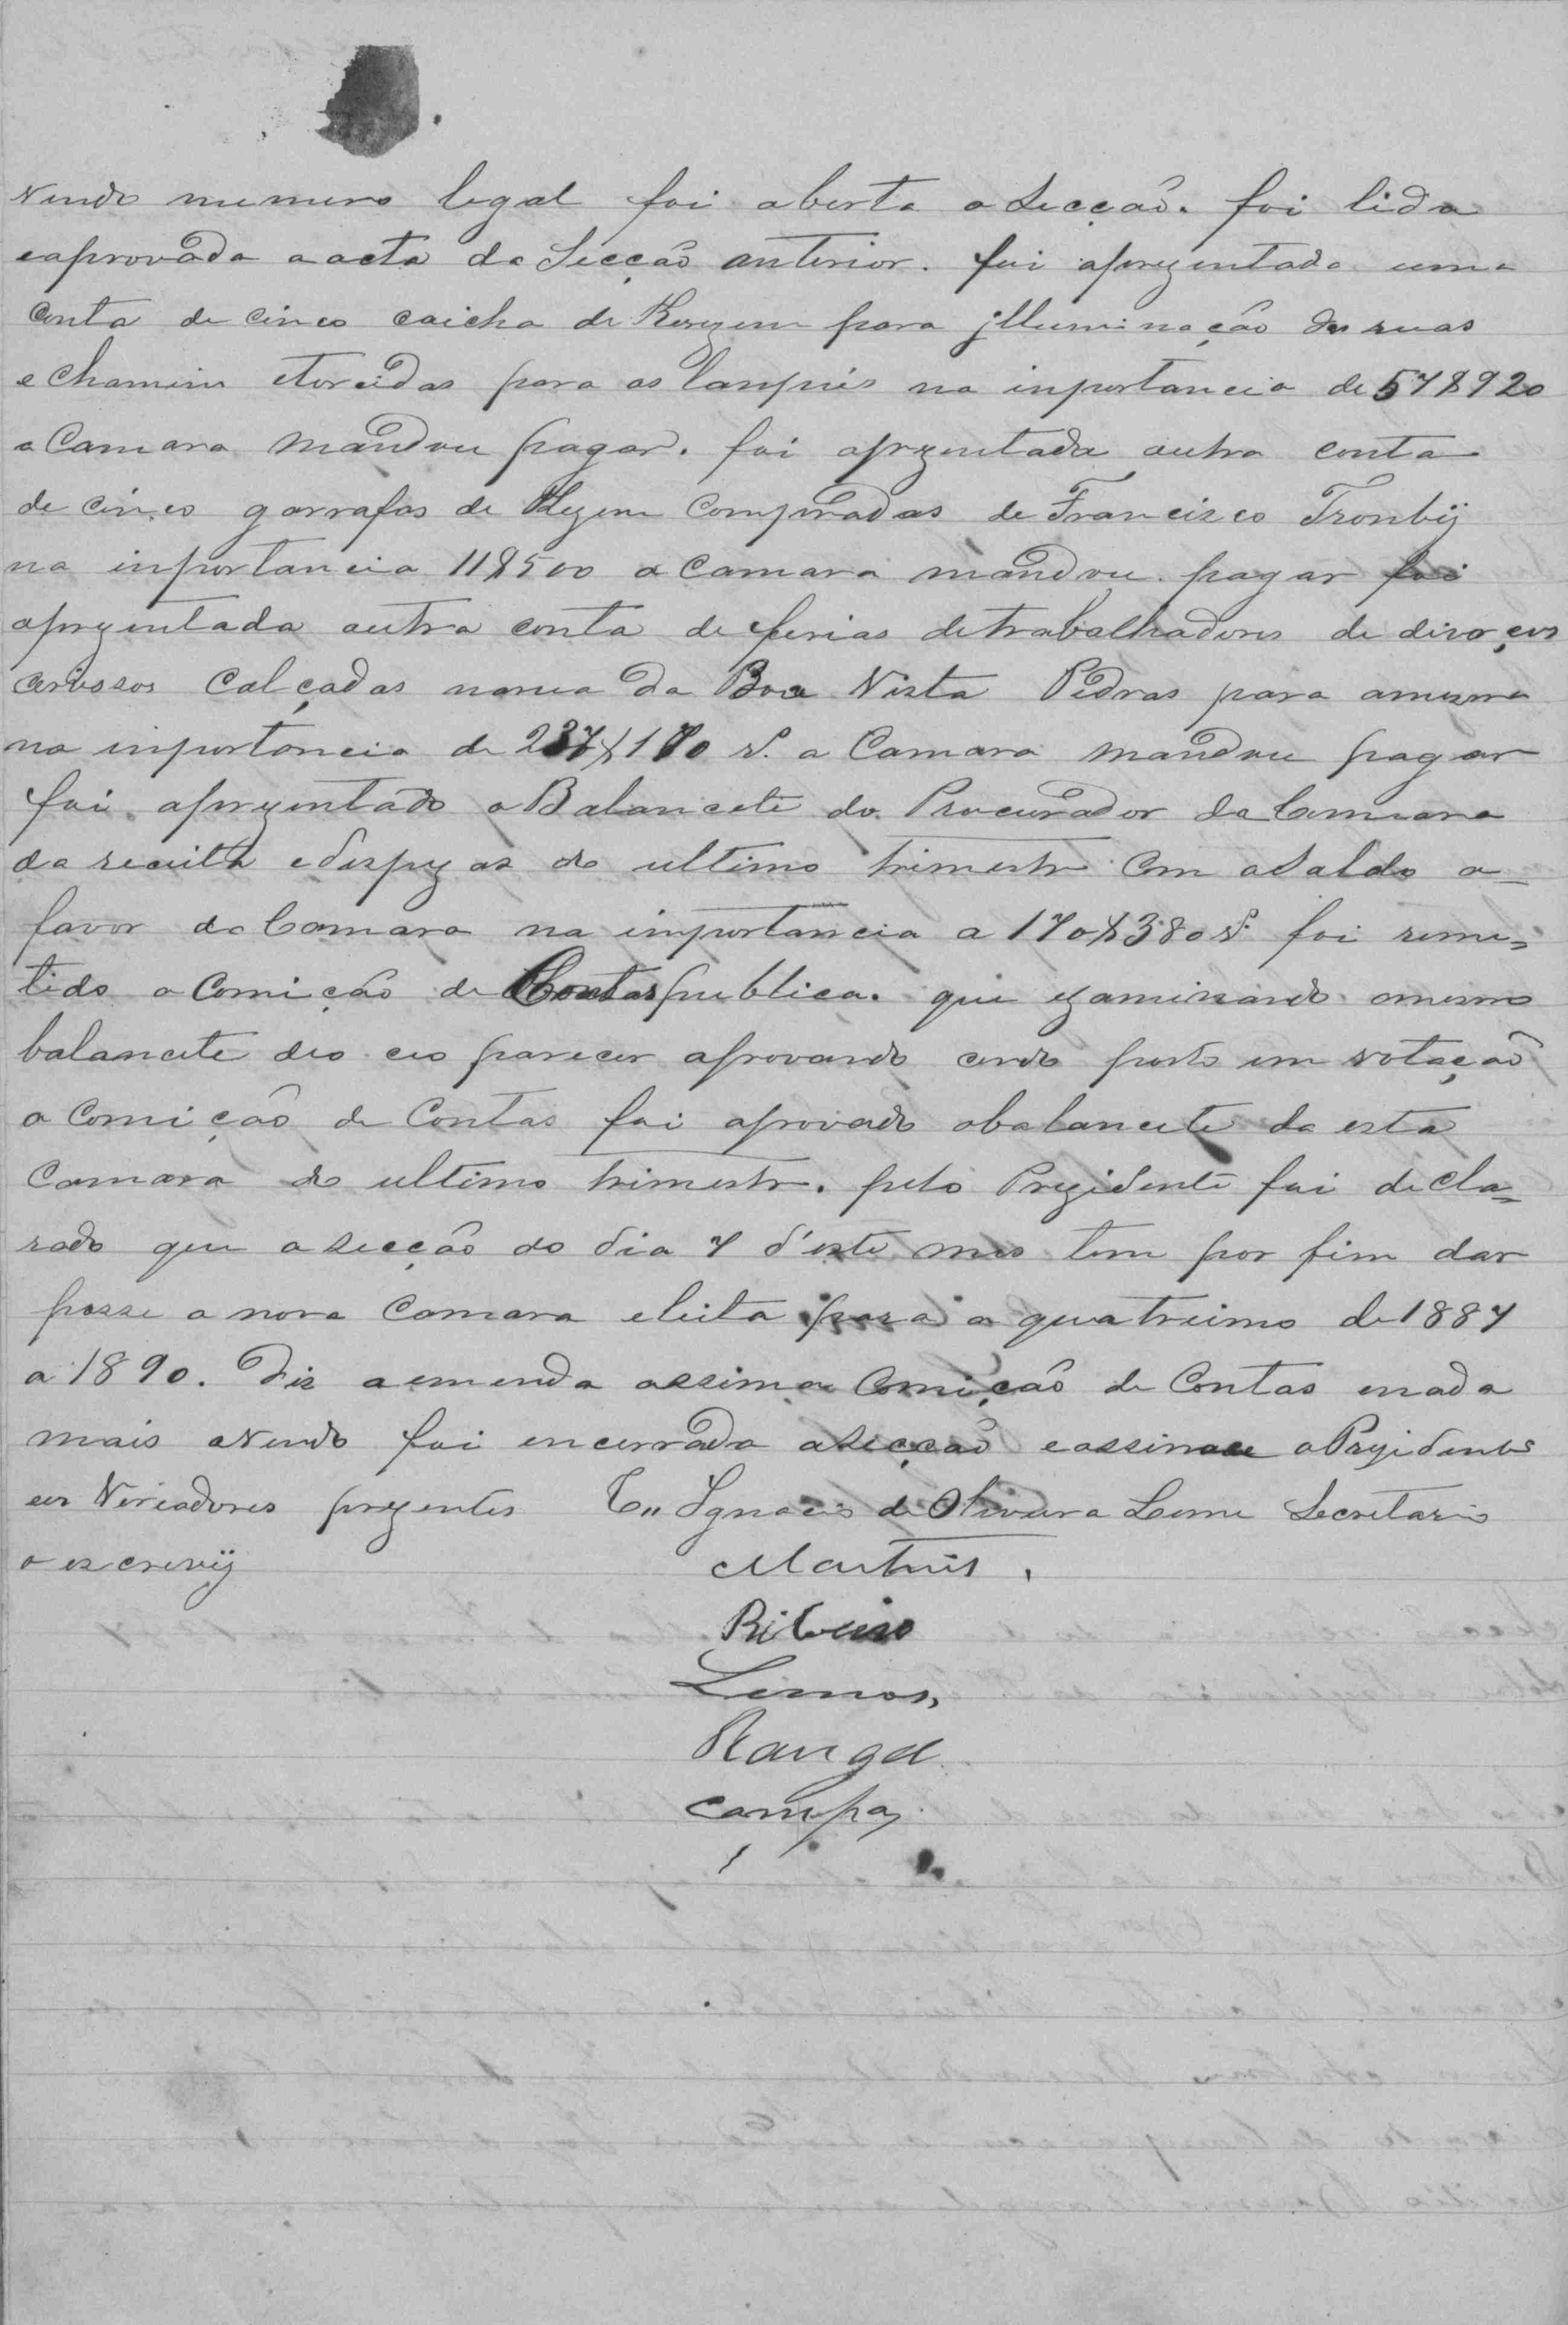 vendo numero legal foi aberta a Secção. foi lida
eaprovada a acta da Secção anterior. foi aprezentada uma
Conta de cinco caicha de Kerozene para jlluminação das ruas
e Chamins etorcidas para os lanpiés na inportancia de 57$920
a Camara mandou pagar. foi aprzentada outra conta
de cinco garrafas de Compradas de Francisco Tronbij
na inportancia 11$500 a Camara mandou pagar foi
aprezentada outra conta de ferias detrabalhadores de
Calçadas narua da Boa Vista Pedras para amesma
na inportancia de 237$170 rs. a Camara mandou pagar
foi aprezentado o Balancete do Procurador da Camara
da receita edespezas do ultimo trimestre Com oSaldo a
favor da Camara na importancia a 170$380 rs. foi reme=
tido a Comição de Contas publica. que ezaminando omesmo
balancete deo ceo parecer aprovando cendo posto em votação
a Comição de Contas foi aprovado obalancete da esta
Camara do ultimo trimestre. pelo Prezidente foi decla=
rado que a secção do dia 7 d'este mes tem por fim dar
posse a nova Camara eleita para o quatreimo de 1887
a 1890. Diz a emenda assima Comição de Contas enada
mais avendo foi encerrada asecção eassinace oPrezidente
eos Veriadores prezentes Eu Ignacio de Oliveira Leme Secretario
o escrevij
Martins.
Ribeiro
Lemos,
Rangel
Campos